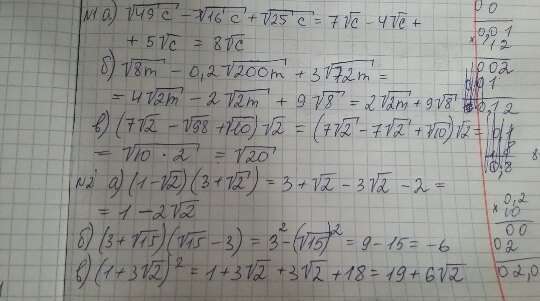 №1 а) √49c − √16c + √25c = 7√c − 4√c +
+ 5√c = 8√c
б) √8m − 0,2√200m + 3√72m =
= 4√2m − 2√2m + 9√8 = 2√2m + 9√8
в) (7√2 − √98 + √10)√2 = (7√2 − 7√2 + √10)√2 =
= √10 · 2 = √20
№2 а) (1−√2)(3+√2) = 3+√2 − 3√2 − 2 =
= 1 − 2√2
б) (3+√15)(√15 − 3) = 3² − (√15)² = 9 − 15 = −6
в) (1+3√2)² = 1 + 3√2 + 3√2 + 18 = 19 + 6√2
00
0,01
× 12
002
01
0,12
8
0,8
× 0,2
10
00
02
02,0